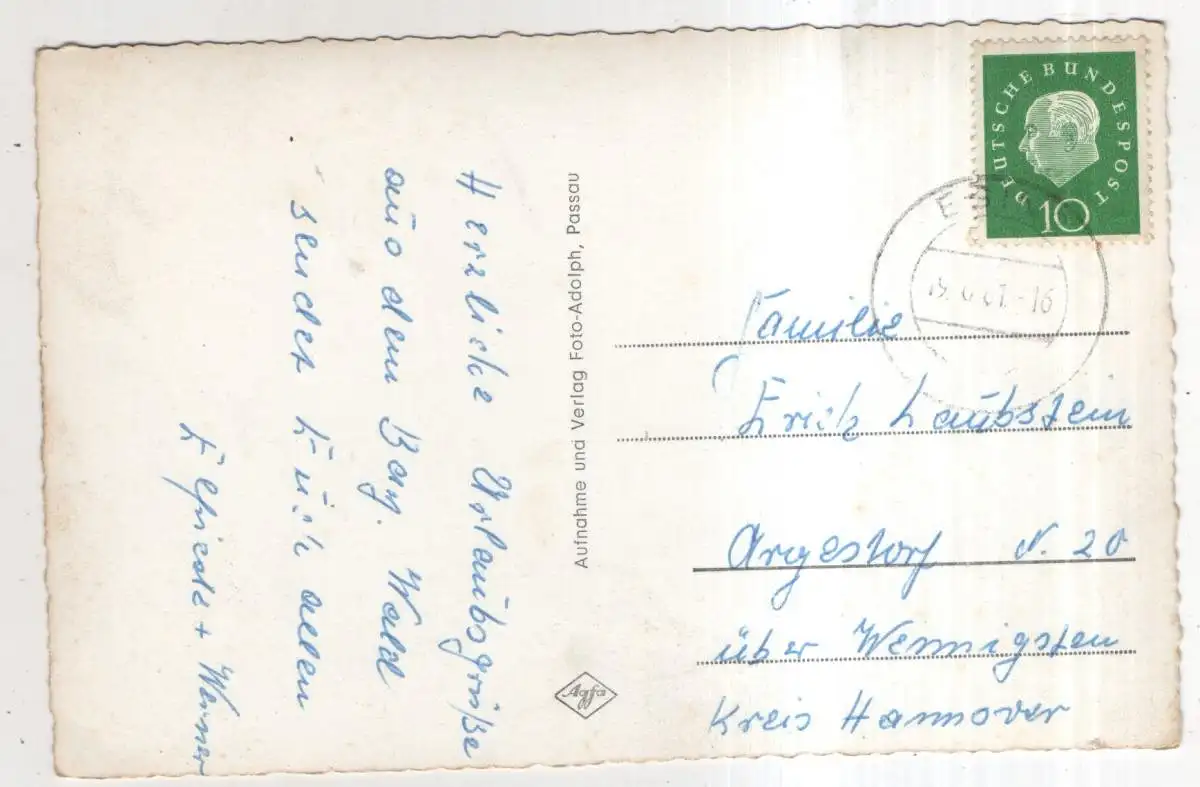 Herzliche Urlaubsgrüße
aus dem Bay. Wald
sendet Euch allen
Elfriede + Werner
Aufnahme und Verlag Foto-Adolph, Passau
Agfa
DEUTSCHE BUNDESPOST
10
61.-16
Familie
Erich Laubstein
Argestorf N. 20
über Wennigsten
Kreis Hannover